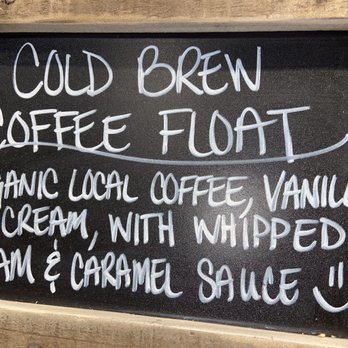 COLD BREW
COFFEE FLOAT
GANIC LOCAL COFFEE, VANILL
CREAM, WITH WHIPPED
AM & CARAMEL SAUCE :)